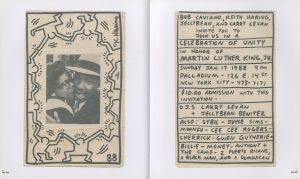 K. Haring
88
BOB CAVIANO, KEITH HARING,
JELLYBEAN, AND LARRY LEVAN
INVITE YOU TO
JOIN US IN A
CELEBRATION OF UNITY
IN HONOR OF
MARTIN LUTHER KING, JR.
SUNDAY JAN 17 1988 9 PM
PALLADIUM - 126 E. 14 ST.
NEW YORK CITY - 473-7171
$10.00 ADMISSION WITH THIS
INVITATION -
D.J.S LARRY LEVAN
+ JELLYBEAN BENITEZ
ALSO: SYBIL - JOYCE SIMS -
CEE CEE ROGERS -
CHERRICK - GWEN GUTHRIE -
BILLIE - MONEY - ANTHONY +
THE CAMP - 2 PUERTO RICANS,
A BLACK MAN, AND A DOMINICAN